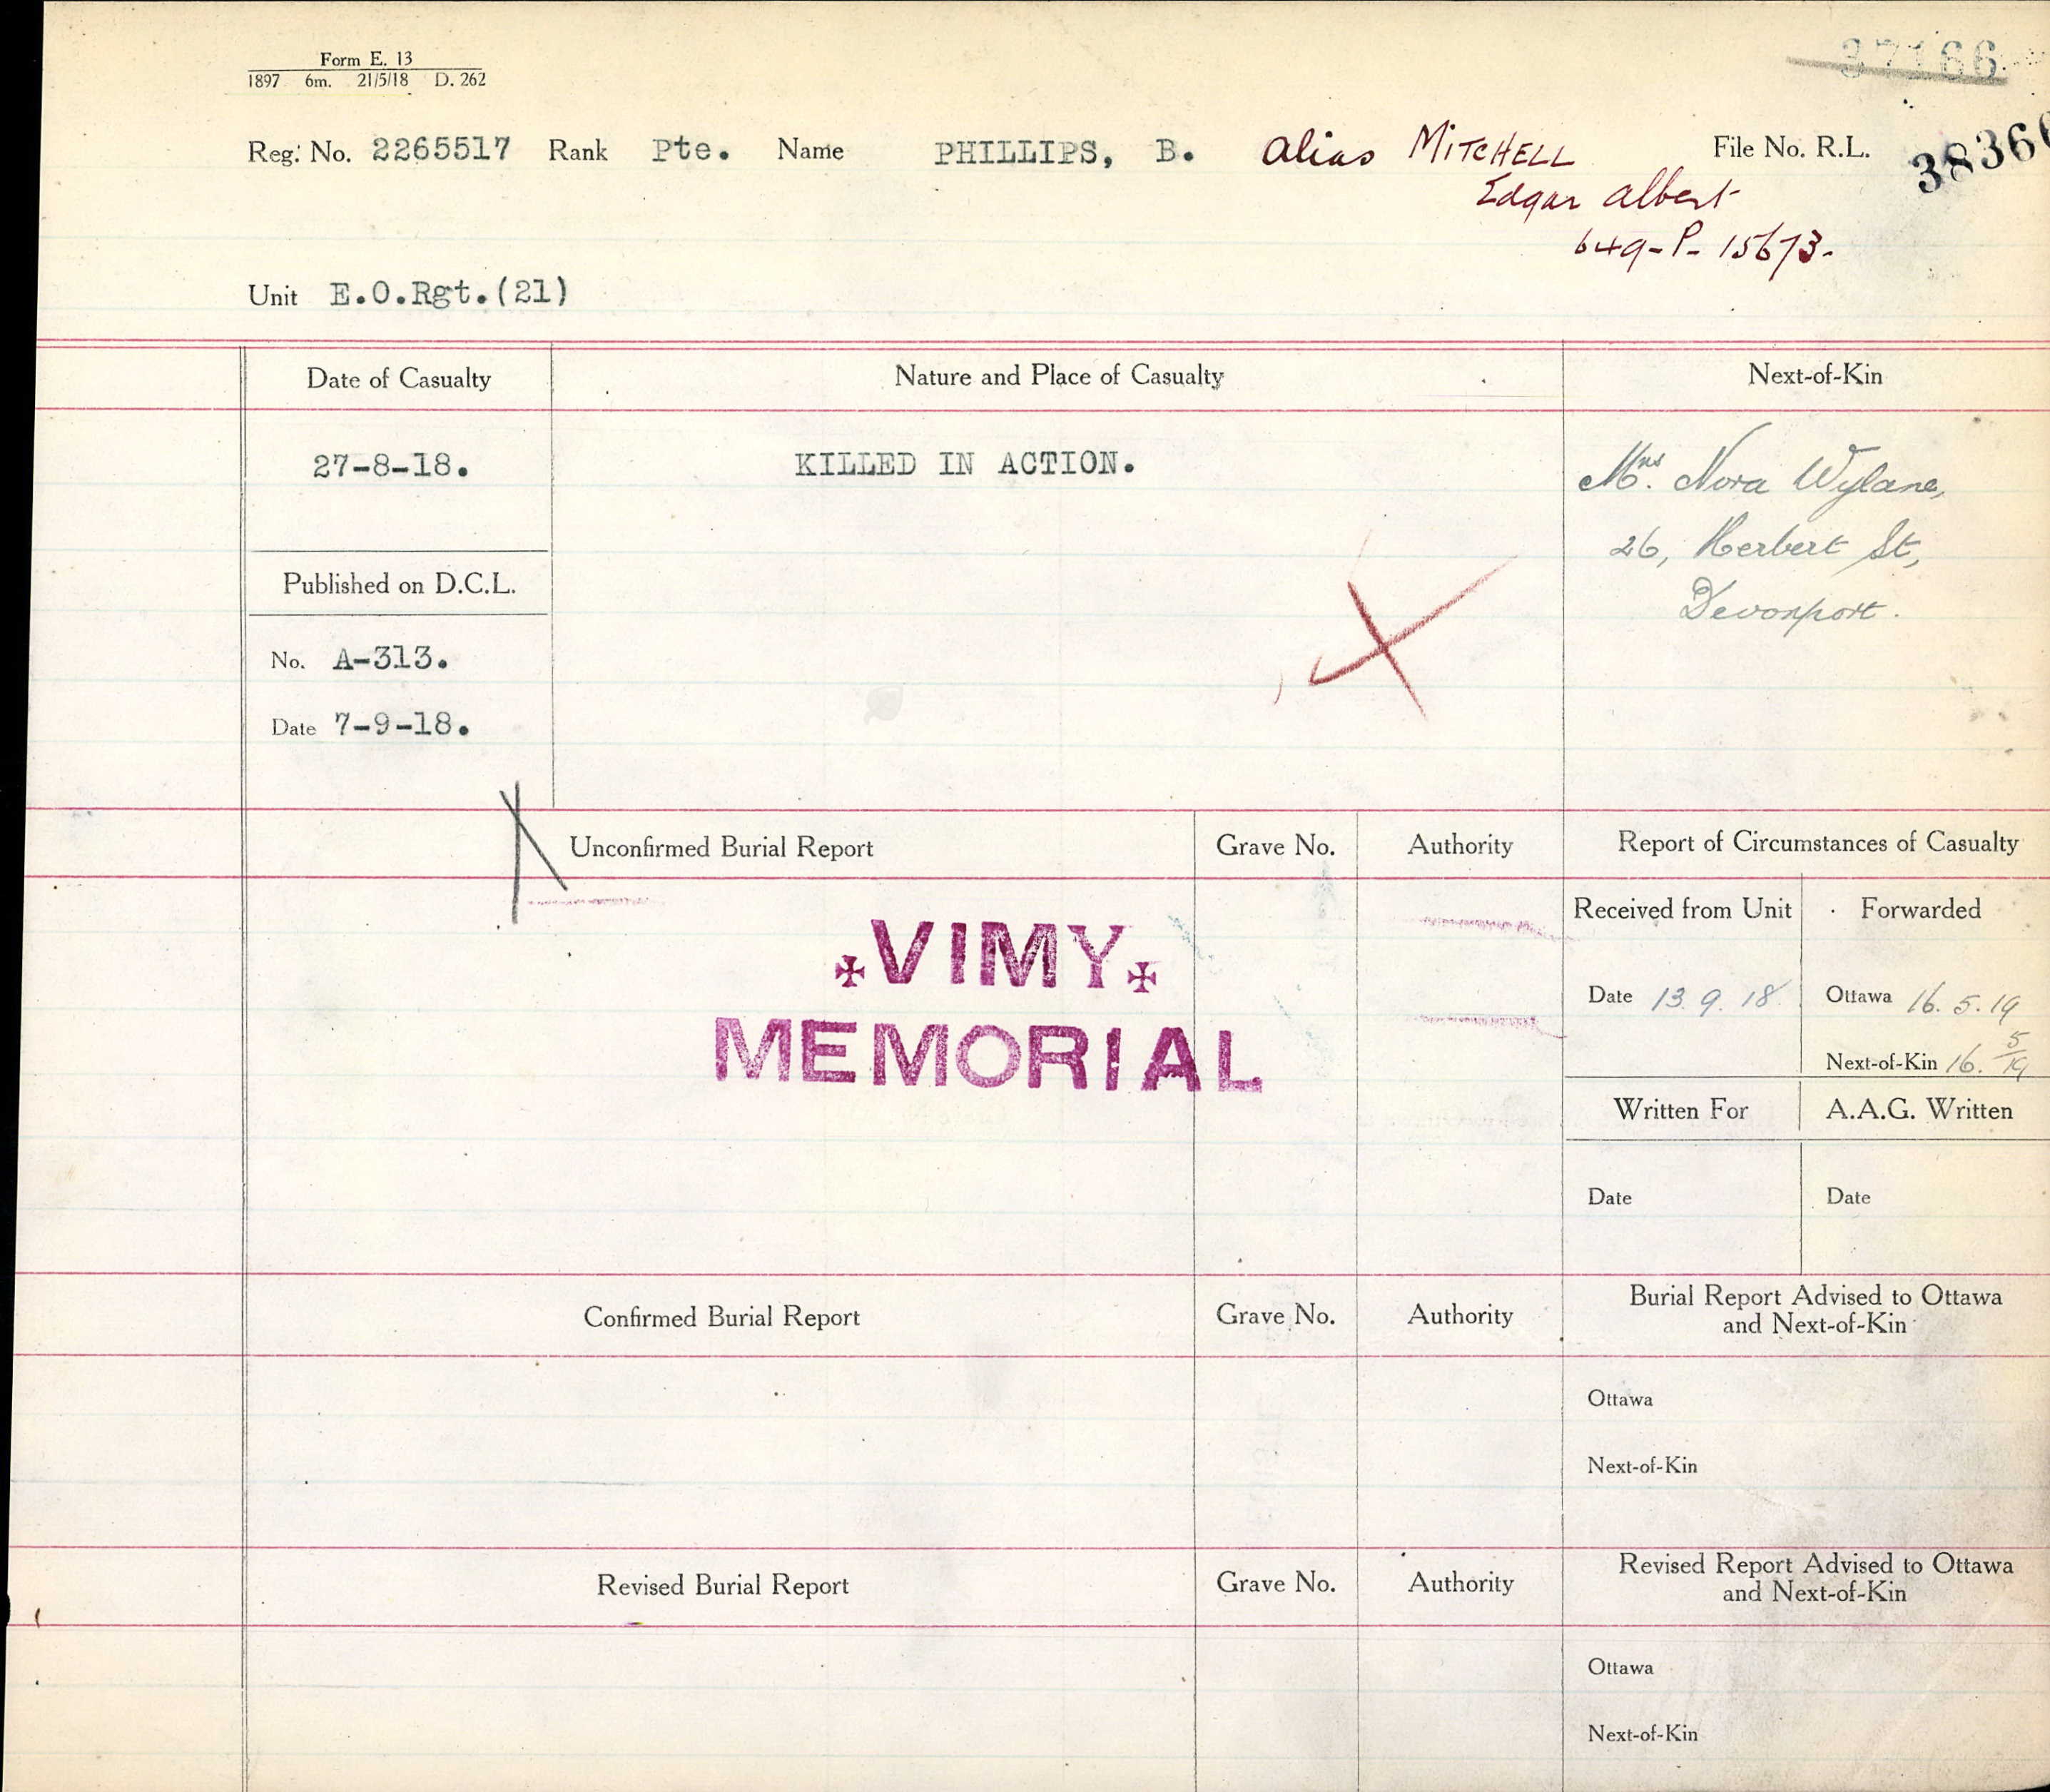 Form E. 13
1897 6m. 21/5/18 D. 262
37166
Reg. No. 2265517 Rank Pte. Name PHILLIPS, B. alias MITCHELL File No. R.L. 3836
Edgar Albert
649-P-15673.
Unit E.O.Rgt.(21)
Date of Casualty Nature and Place of Casualty Next-of-Kin
27-8-18. KILLED IN ACTION. Mrs. Nora Wylane,
26, Herbert St,
Devonport.
Published on D.C.L.
No. A-313.
Date 7-9-18.
Unconfirmed Burial Report Grave No. Authority Report of Circumstances of Casualty
Received from Unit Forwarded
VIMY
MEMORIAL
Date 13.9.18 Ottawa 16.5.19
Next-of-Kin 16. 5/19
Written For A.A.G. Written
Date Date
Confirmed Burial Report Grave No. Authority Burial Report Advised to Ottawa
and Next-of-Kin
Ottawa
Next-of-Kin
Revised Burial Report Grave No. Authority Revised Report Advised to Ottawa
and Next-of-Kin
Ottawa
Next-of-Kin